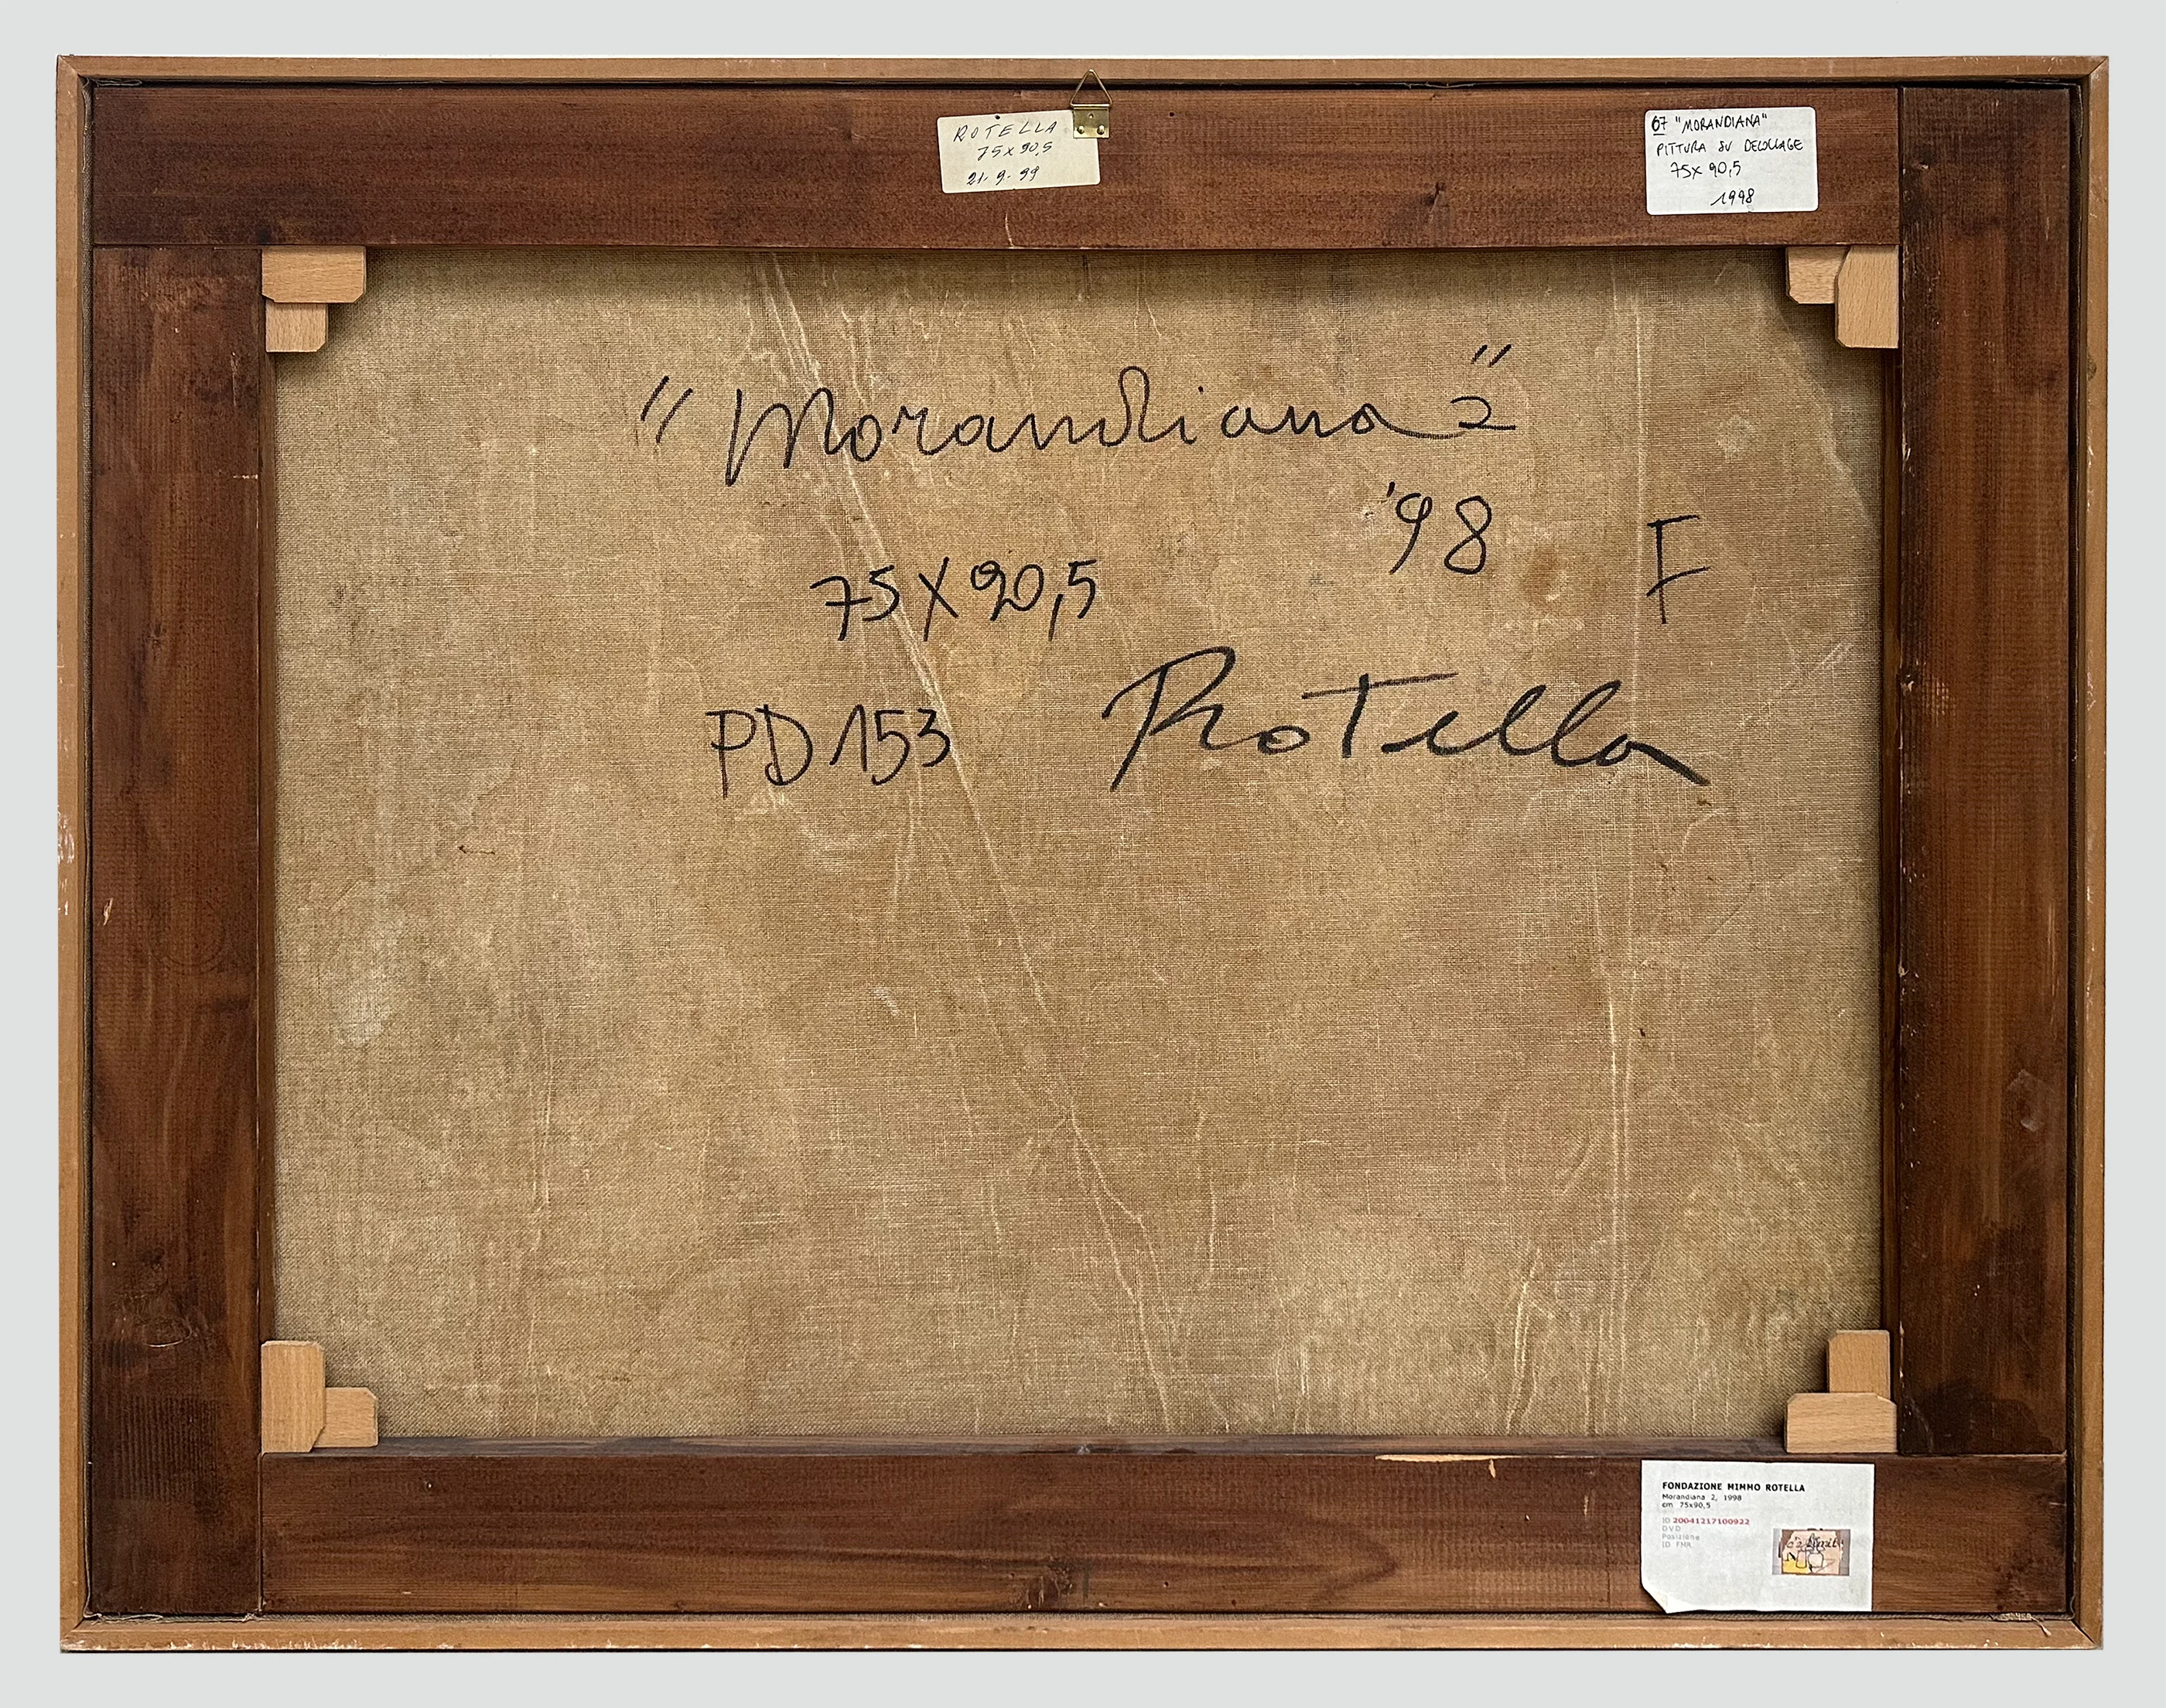 ROTELLA
75x90,5
21-9-99
67 "MORANDIANA"
PITTURA SU DECOLLAGE
75x90,5
1998
"Morandiana 2"
'98
F
75X90,5
PD 153
Rotella
FONDAZIONE MIMMO ROTELLA
Morandiana 2, 1998
cm 75x90,5
ID 20041217100922
DVD
Posizione
ID FMR